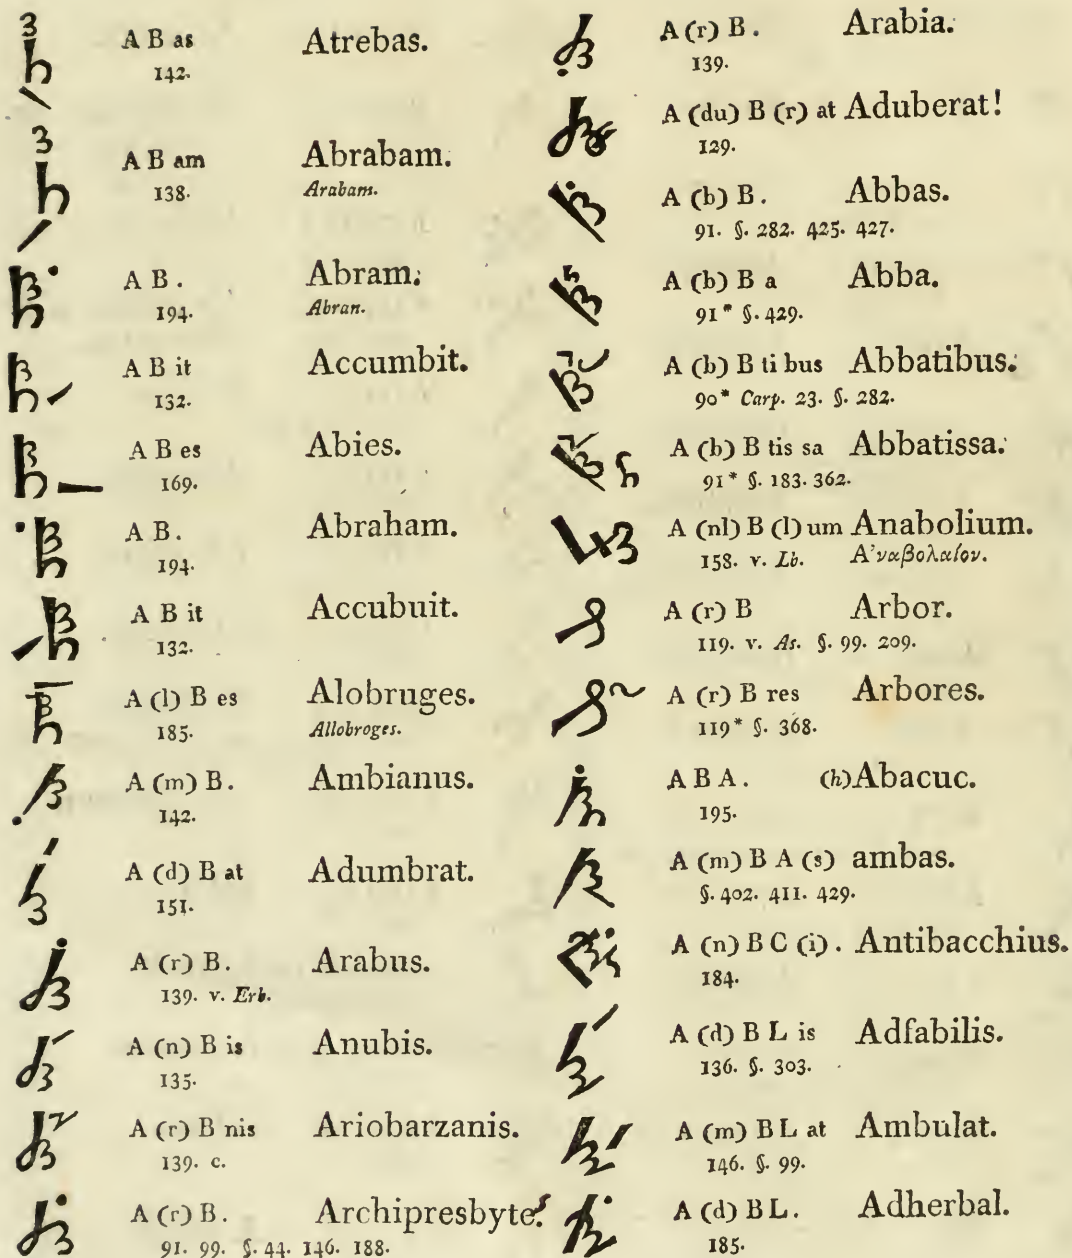 A B as Atrebas.
142.
A B am Abrabam.
138. Arabam.
A B. Abram.
194. Abran.
A B it Accumbit.
132.
A B es Abies.
169.
A B. Abraham.
194.
A B it Accubuit.
132.
A (l) B es Alobruges.
185. Allobroges.
A (m) B. Ambianus.
142.
A (d) B at Adumbrat.
151.
A (r) B. Arabus.
139. v. Erb.
A (n) B is Anubis.
135.
A (r) B nis Ariobarzanis.
139. c.
A (r) B. Archipresbyter.
91. 99. §. 44. 146. 188.
A (r) B. Arabia.
139.
A (du) B (r) at Aduberat!
129.
A (b) B. Abbas.
91. §. 282. 425. 427.
A (b) B a Abba.
91* §. 429.
A (b) B ti bus Abbatibus.
90* Carp. 23. §. 282.
A (b) B tis sa Abbatissa.
91* §. 183. 362.
A (nl) B (l) um Anabolium.
158. v. Lb. Ἀναβολαίον.
A (r) B Arbor.
119. v. As. §. 99. 209.
A (r) B res Arbores.
119* §. 368.
A B A. (h)Abacuc.
195.
A (m) B A (s) ambas.
§. 402. 411. 429.
A (n) B C (i). Antibacchius.
184.
A (d) B L is Adfabilis.
136. §. 303.
A (m) B L at Ambulat.
146. §. 99.
A (d) B L. Adherbal.
185.